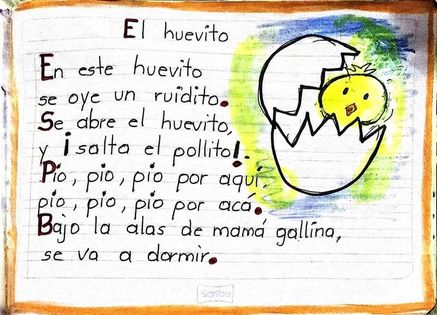 El huevito
En este huevito
se oye un ruidito.
Se abre el huevito,
y ¡salta el pollito!.
Pío, pío, pío por aquí,
pío, pío, pío por acá.
Bajo la alas de mamá gallina,
se va a dormir.
Scribe